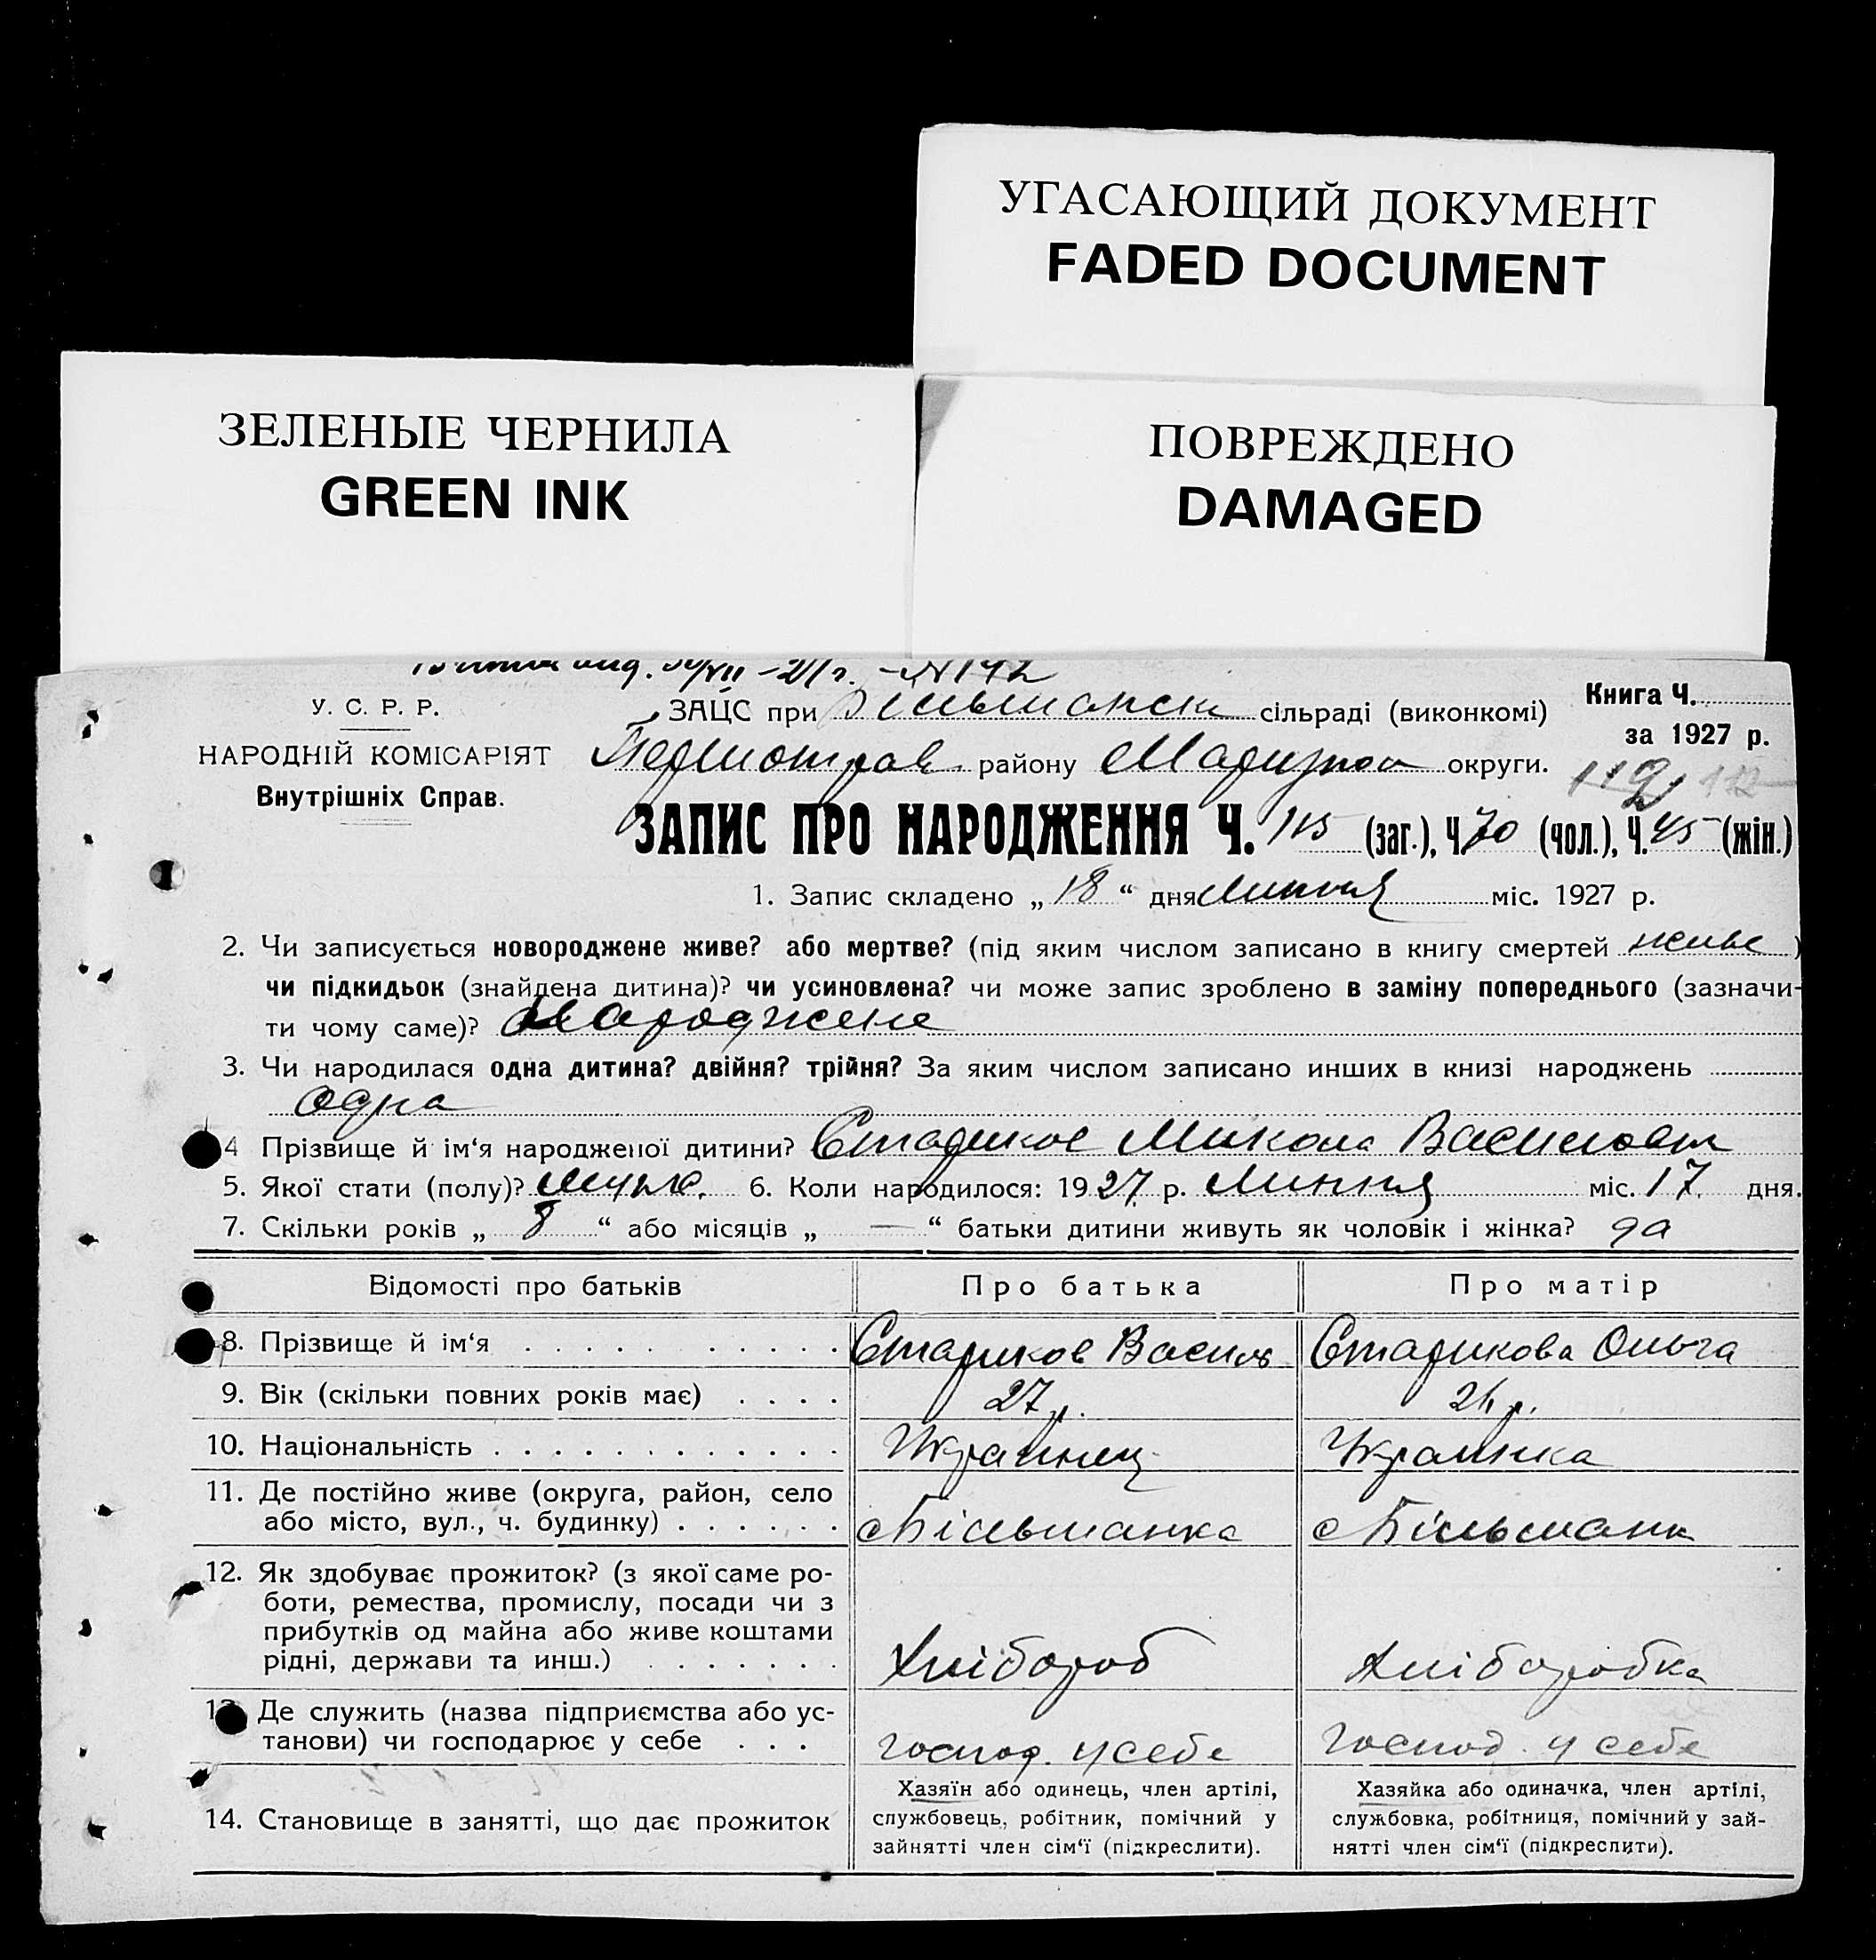 УГАСАЮЩИЙ ДОКУМЕНТ
FADED DOCUMENT
ЗЕЛЕНЫЕ ЧЕРНИЛА
GREEN INK
ПОВРЕЖДЕНО
DAMAGED
№ 142
У. С. Р. Р.
НАРОДНІЙ КОМІСАРІЯТ
Внутрішніх Справ.
ЗАЦС при Більманськ сільраді (виконкомі)
Першотрав. району Маріюпол округи.
Книга Ч.
за 1927 р.
112 112
ЗАПИС ПРО НАРОДЖЕННЯ Ч. 115 (заг.), Ч. 70 (чол.), Ч. 45 (жін.)
1. Запис складено „ 18 “ дня Липня міс. 1927 р.
2. Чи записується новороджене живе? або мертве? (під яким числом записано в книгу смертей живе )
чи підкидьок (знайдена дитина)? чи усиновлена? чи може запис зроблено в заміну попереднього (зазначи-
ти чому саме)? Народжене
3. Чи народилася одна дитина? двійня? трійня? За яким числом записано инших в книзі народжень
Одна
4 Прізвище й ім‘я народженої дитини? Стариков Микола Василович
5. Якої стати (полу)? Мужс. 6. Коли народилося: 1927. р. Липня міс. 17. дня.
7. Скільки років „ 8 “ або місяців „ — “ батьки дитини живуть як чоловік і жінка? да
Відомості про батьків Про батька Про матір
8. Прізвище й ім‘я Стариков Василь Старикова Ольга
9. Вік (скільки повних років має) 27 р. 24 р.
10. Національність Українец Українка
11. Де постійно живе (округа, район, село
або місто, вул., ч. будинку) с Більманка с Більманк
12. Як здобуває прожиток? (з якої саме ро-
боти, ремества, промислу, посади чи з
прибутків од майна або живе коштами
рідні, держави та инш.) Хлібороб Хліборобка
13 Де служить (назва підприємства або ус-
танови) чи господарює у себе господ. у себе господ. у себе
14. Становище в занятті, що дає прожиток
Хазяїн або одинець, член артілі,
службовець, робітник, помічний у
зайнятті член сім‘ї (підкреслити).
Хазяйка або одиначка, член артілі,
службовка, робітниця, помічний у зай-
нятті член сім‘ї (підкреслити).